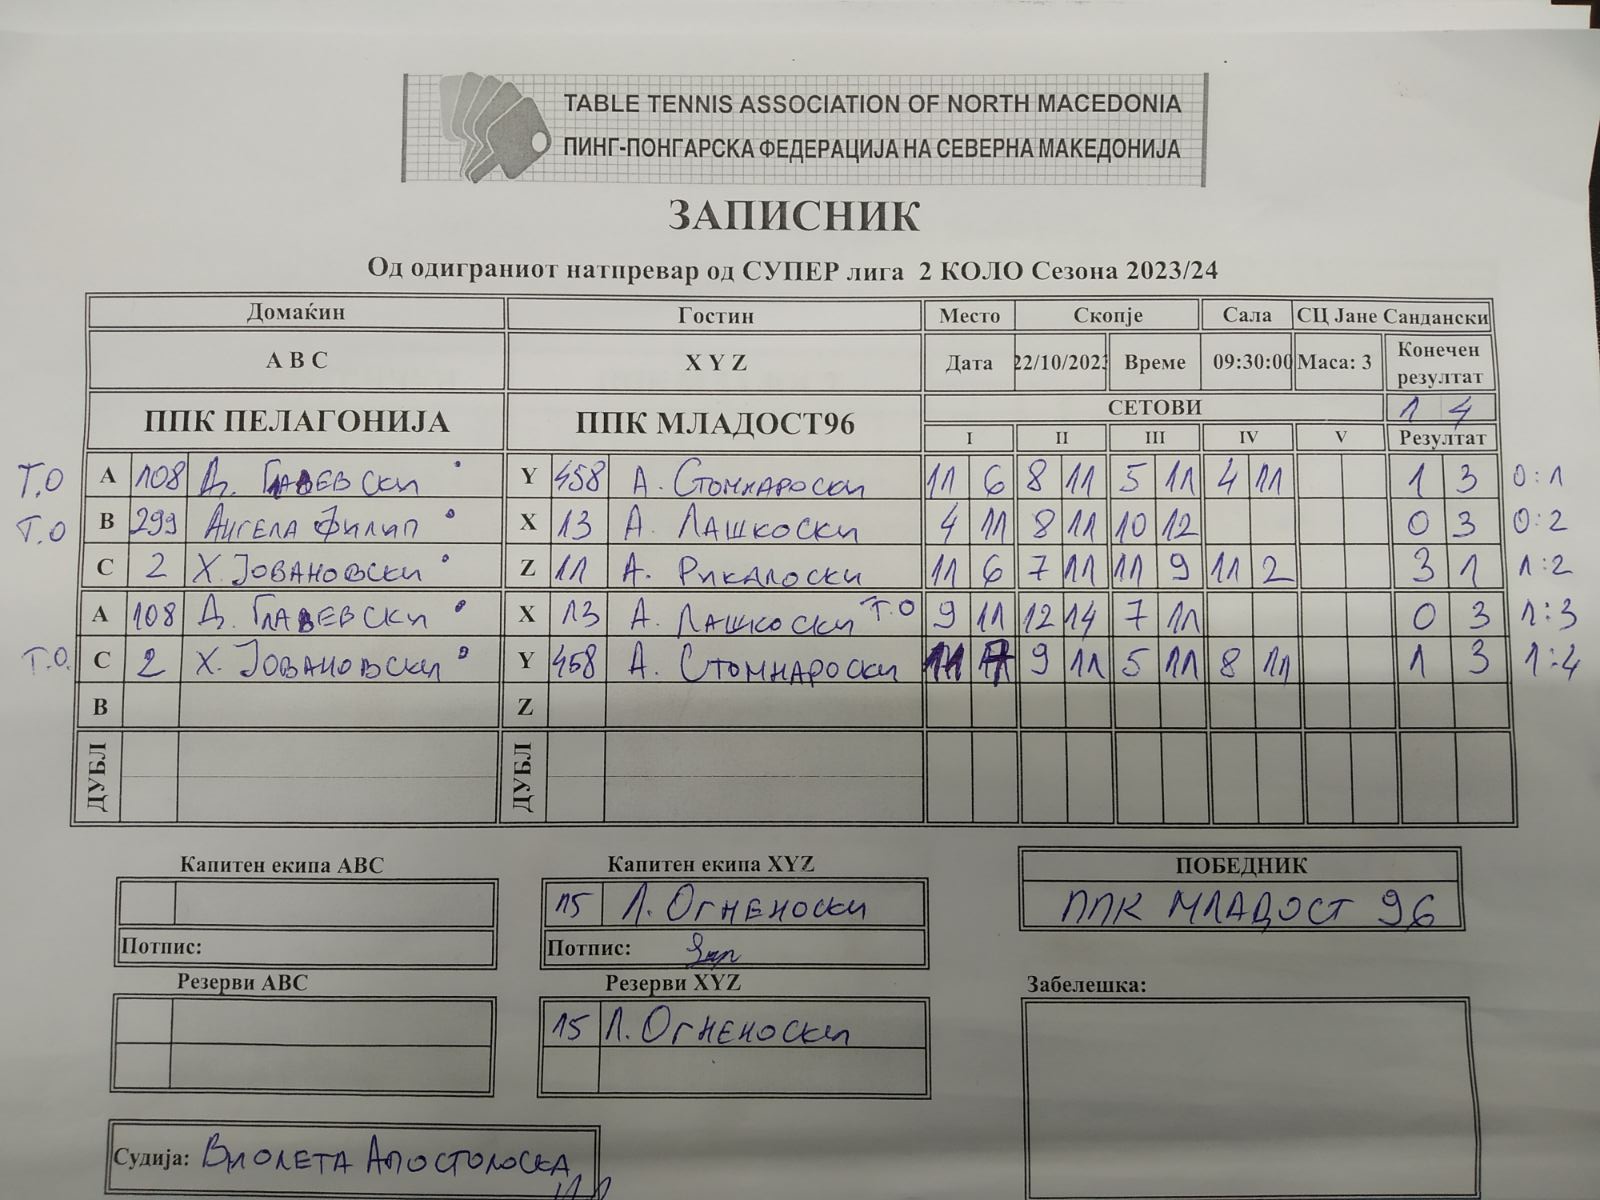 TABLE TENNIS ASSOCIATION OF NORTH MACEDONIA
ПИНГ-ПОНГАРСКА ФЕДЕРАЦИЈА НА СЕВЕРНА МАКЕДОНИЈА
ЗАПИСНИК
Од одиграниот натпревар од СУПЕР лига 2 КОЛО Сезона 2023/24
Домаќин Гостин Место Скопје Сала СЦ Јане Сандански
A B C X Y Z Дата 22/10/2023 Време 09:30:00 Маса: 3 Конечен резултат
ППК ПЕЛАГОНИЈА ППК МЛАДОСТ96 СЕТОВИ 1 4
I II III IV V Резултат
Т.О A 108 Д. ГЛАВЕВСКИ Y 458 А. СТОМНАРОСКИ 11 6 8 11 5 11 4 11 1 3 0:1
Т.О B 299 АНГЕЛА ФИЛИП X 13 А. ЛАШКОСКИ 4 11 8 11 10 12 0 3 0:2
C 2 Х. ЈОВАНОВСКИ Z 11 А. РИКАЛОСКИ 11 6 7 11 11 9 11 2 3 1 1:2
A 108 Д. ГЛАВЕВСКИ X 13 А. ЛАШКОСКИ Т.О 9 11 12 14 7 11 0 3 1:3
Т.О. C 2 Х. ЈОВАНОВСКИ Y 458 А. СТОМНАРОСКИ 11 7 9 11 5 11 8 11 1 3 1:4
B Z
ДУБЛ ДУБЛ
Капитен екипа ABC Капитен екипа XYZ ПОБЕДНИК
15 Л. ОГНЕНОСКИ ППК МЛАДОСТ 96
Потпис: Потпис:
Резерви ABC Резерви XYZ Забелешка:
15 Л. ОГНЕНОСКИ
Судија: ВИОЛЕТА АПОСТОЛОСКА